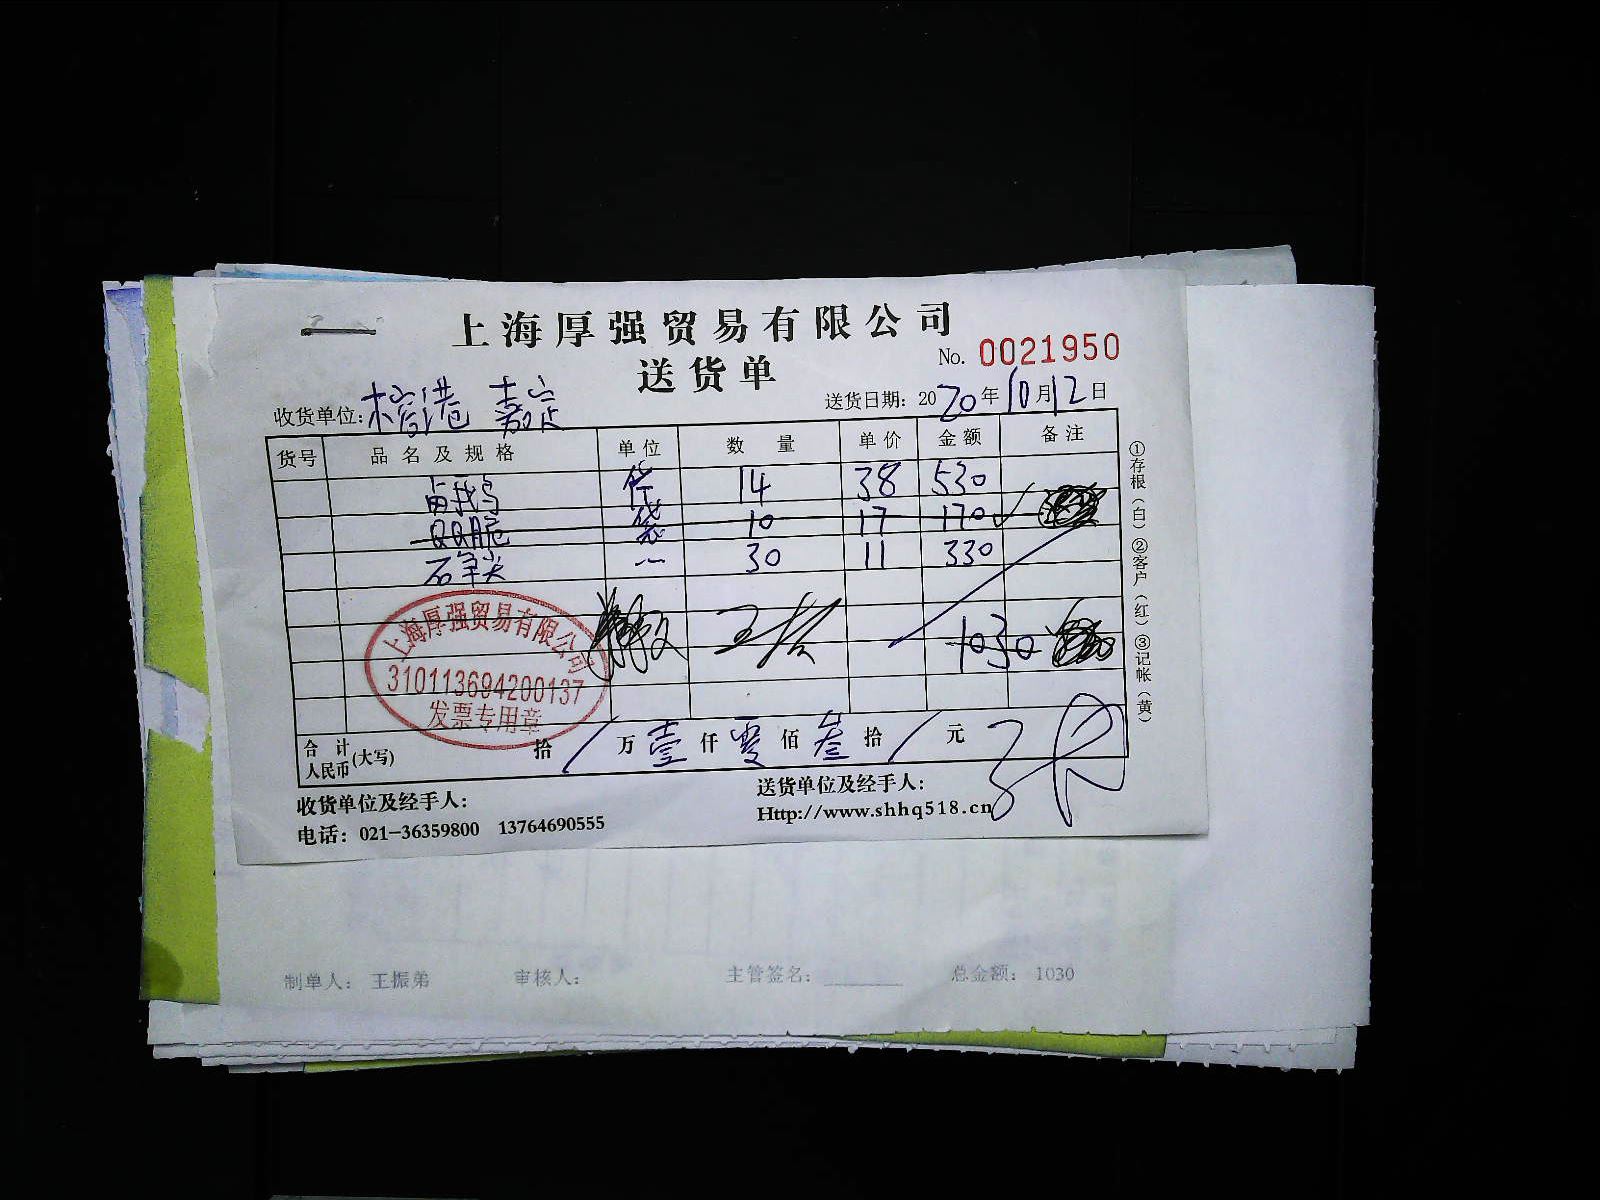 上海厚强贸易有限公司
送货单
No. 0021950
收货单位: 榕港 嘉定
送货日期: 2020年10月12日
货号 品名及规格 单位 数量 单价 金额 备注
14 38 530
QQ脆 袋 10 17 170
30 11 330
1030
上海厚强贸易有限公司
310113694200137
发票专用章
合计人民币(大写) 拾 / 万 壹 仟 零 佰 叁 拾 / 元
收货单位及经手人:
送货单位及经手人:
电话: 021-36359800 13764690555
Http://www.shhq518.cn
①存根(白)②客户(红)③记帐(黄)
制单人: 王振弟 审核人: 主管签名: 总金额: 1030